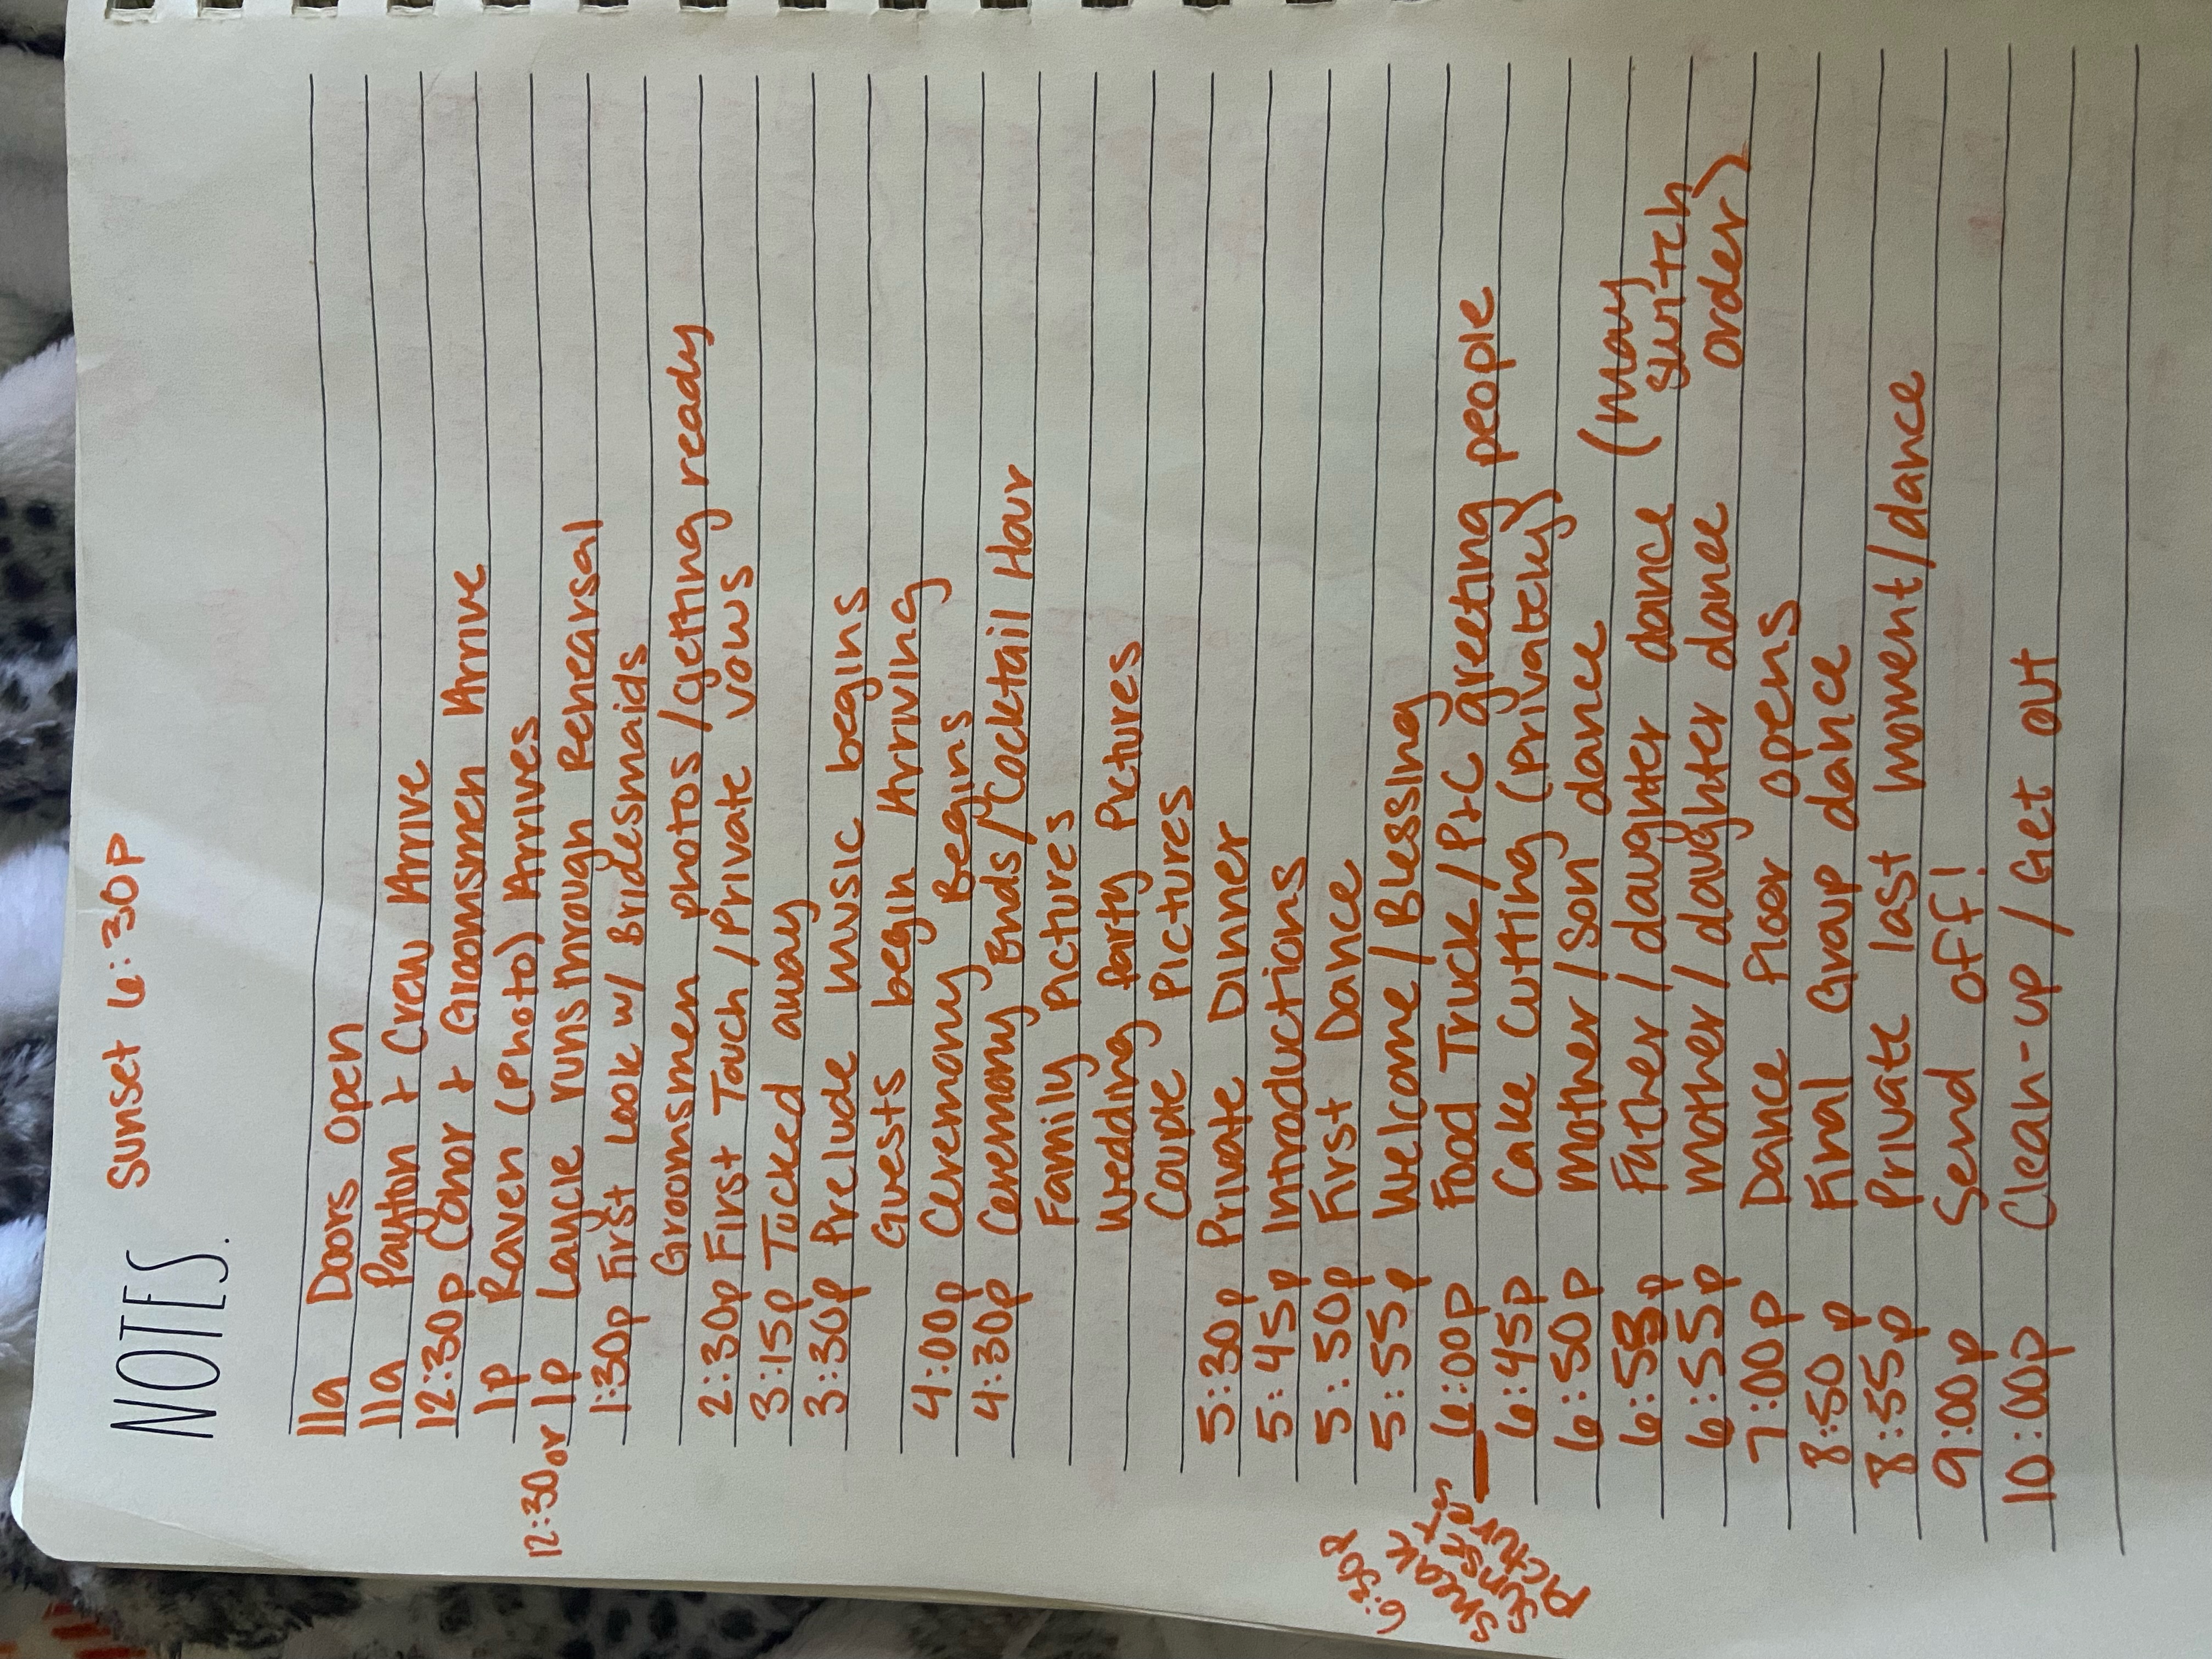 NOTES. sunset 6:30p
11a Doors open
11a Payton + Crew Arrive
12:30p Conor + Groomsmen Arrive
1p Raven (Photo) Arrives
12:30 or 1p Laycie runs through Rehearsal
1:30p First Look w/ Bridesmaids
Groomsmen photos/getting ready
2:30p First Touch/Private vows
3:15p Tucked away
3:30p Prelude music begins
Guests begin Arriving
4:00p Ceremony Begins
4:30p Ceremony Ends/Cocktail Hour
Family Pictures
Wedding Party Pictures
Couple Pictures
5:30p Private Dinner
5:45p Introductions
5:50p First Dance
5:55p Welcome/Blessing
6:30p
sneak
sunset
pictures
6:00p Food Truck/P+C greeting people
6:45p Cake Cutting (Privately)
6:50p Mother/Son dance
6:53p Father/daughter dance (may
switch
6:55p Mother/daughter dance order)
7:00p Dance floor opens
8:50p Final Group dance
8:55p Private last moment/dance
9:00p Send off!
10:00p Clean-up/Get out